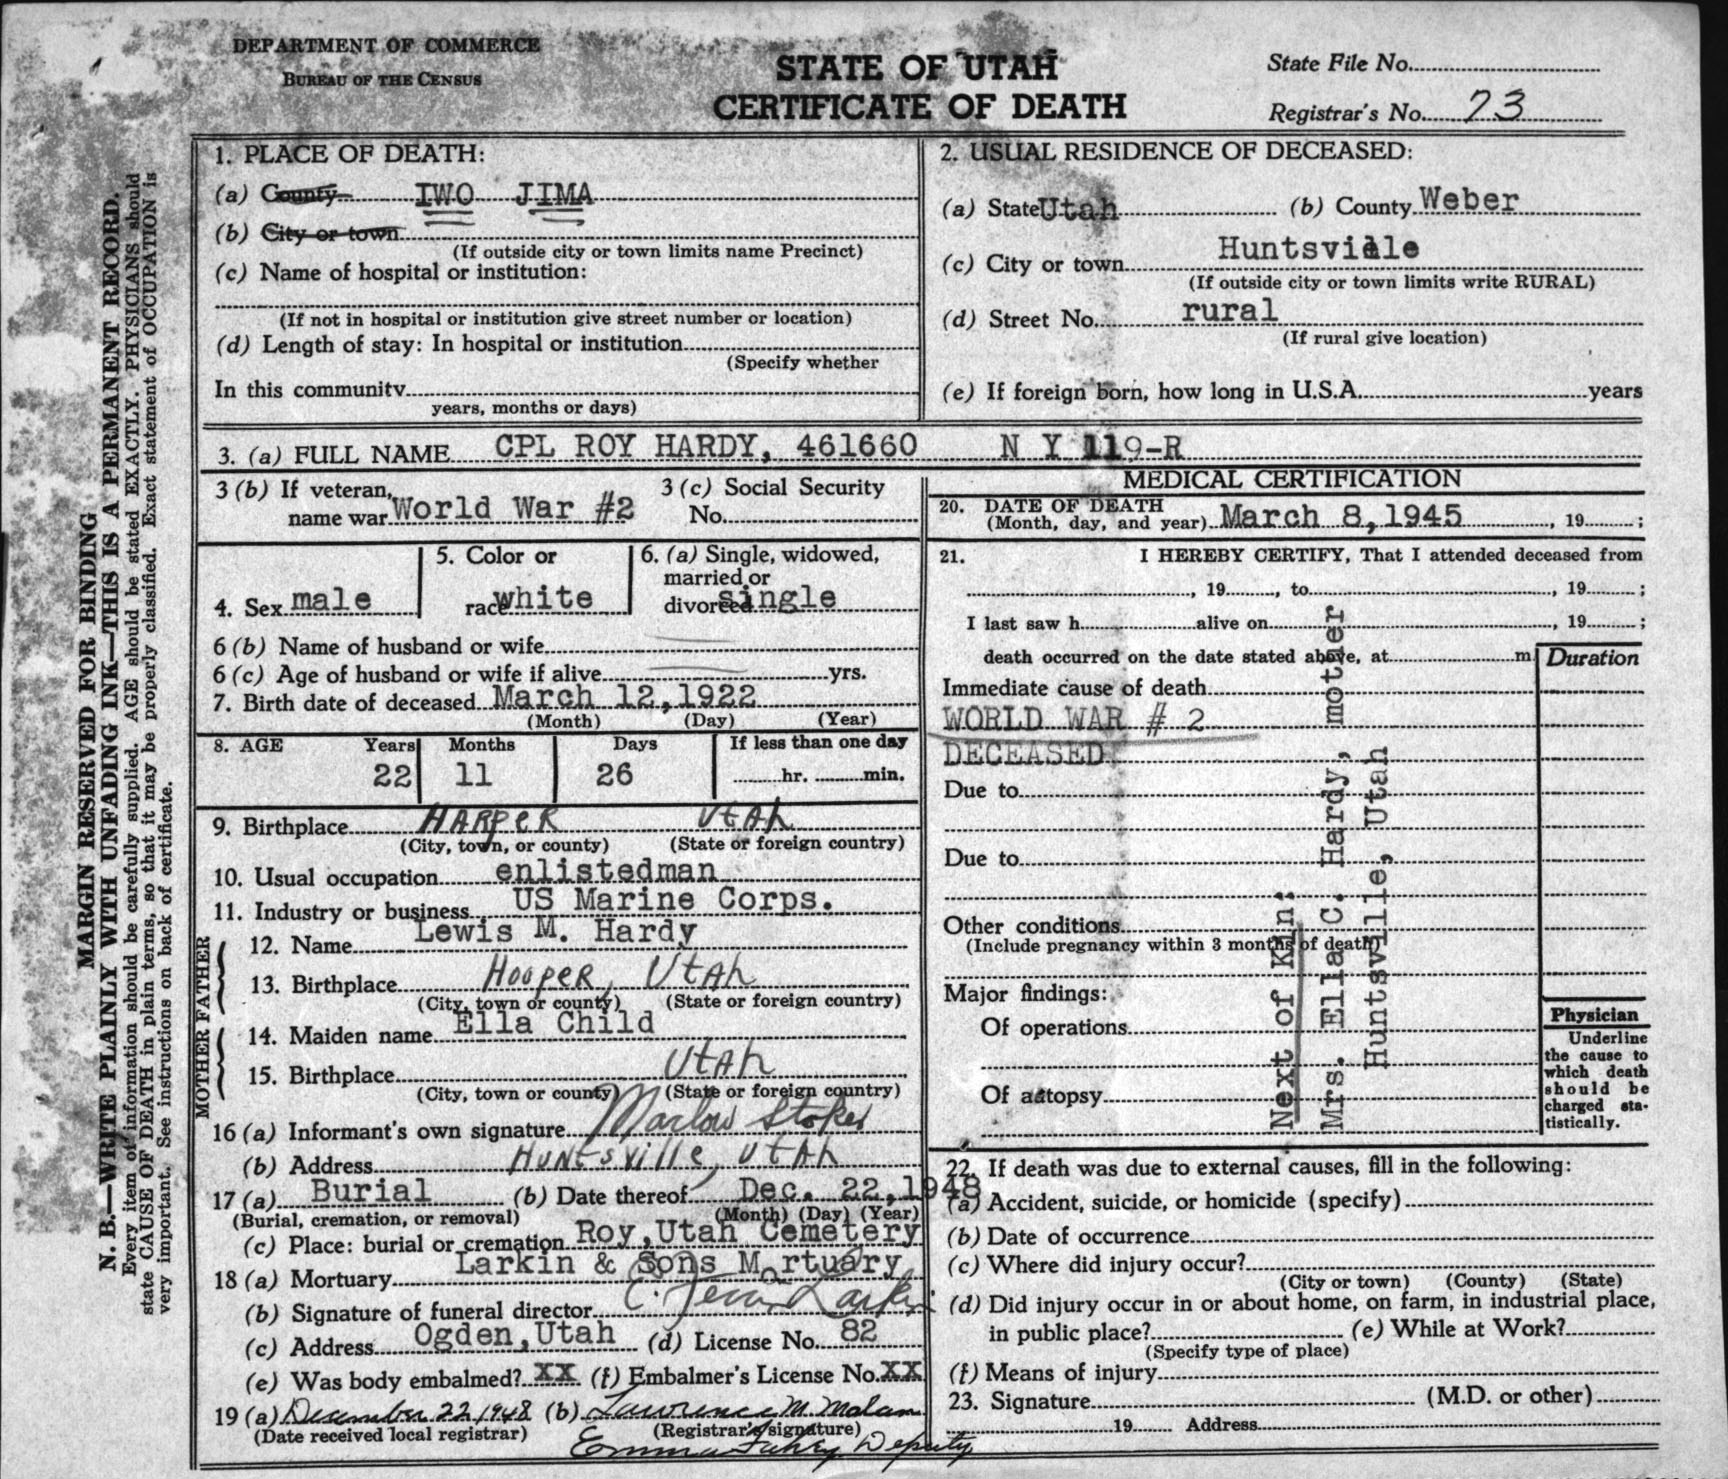 DEPARTMENT OF COMMERCE
BUREAU OF THE CENSUS
STATE OF UTAH
CERTIFICATE OF DEATH
State File No.
Registrar's No. 73
MARGIN RESERVED FOR BINDING
N. B.—WRITE PLAINLY WITH UNFADING INK—THIS IS A PERMANENT RECORD.
Every item of information should be carefully supplied. AGE should be stated EXACTLY. PHYSICIANS should
state CAUSE OF DEATH in plain terms, so that it may be properly classified. Exact statement of OCCUPATION is
very important. See instructions on back of certificate.
1. PLACE OF DEATH:
(a) County IWO JIMA
(b) City or town
(If outside city or town limits name Precinct)
(c) Name of hospital or institution:
(If not in hospital or institution give street number or location)
(d) Length of stay: In hospital or institution
(Specify whether
In this community
years, months or days)
2. USUAL RESIDENCE OF DECEASED:
(a) State Utah (b) County Weber
(c) City or town Huntsville
(If outside city or town limits write RURAL)
(d) Street No. rural
(If rural give location)
(e) If foreign born, how long in U.S.A. years
3. (a) FULL NAME CPL ROY HARDY, 461660 N Y 119-R
3 (b) If veteran, name war World War #2
3 (c) Social Security No.
4. Sex male
5. Color or race white
6. (a) Single, widowed, married or divorced single
6 (b) Name of husband or wife
6 (c) Age of husband or wife if alive yrs.
7. Birth date of deceased March 12,1922
(Month) (Day) (Year)
8. AGE Years Months Days If less than one day
22 11 26 hr. min.
9. Birthplace HARPER UTAH
(City, town, or county) (State or foreign country)
10. Usual occupation enlistedman
11. Industry or business US Marine Corps.
FATHER
12. Name Lewis M. Hardy
13. Birthplace HOOPER, UTAH
(City, town or county) (State or foreign country)
MOTHER
14. Maiden name Ella Child
15. Birthplace UTAH
(City, town or county) (State or foreign country)
16 (a) Informant's own signature Marlow Stoker
(b) Address HUNTSVILLE, UTAH
17 (a) Burial (b) Date thereof Dec. 22,1948
(Burial, cremation, or removal) (Month) (Day) (Year)
(c) Place: burial or cremation Roy,Utah Cemetery
18 (a) Mortuary Larkin & Sons Mortuary
(b) Signature of funeral director Larkin
(c) Address Ogden,Utah (d) License No. 82
(e) Was body embalmed? XX (f) Embalmer's License No. XX
19 (a) December 22, 1948 (b) Lawrence M. Malan
(Date received local registrar) (Registrar's signature)
Emma Deputy
MEDICAL CERTIFICATION
20. DATE OF DEATH
(Month, day, and year) March 8,1945, 19 ;
21. I HEREBY CERTIFY, That I attended deceased from
, 19 , to , 19 ;
I last saw h alive on , 19 ;
death occurred on the date stated above, at m.
Duration
Immediate cause of death
WORLD WAR # 2
DECEASED
Due to
Due to
Other conditions
(Include pregnancy within 3 months of death)
Major findings:
Of operations
Of autopsy
Next of Kin:
Mrs. Ella C. Hardy, mother
Huntsville, Utah
Physician
Underline
the cause to
which death
should be
charged sta-
tistically.
22. If death was due to external causes, fill in the following:
(a) Accident, suicide, or homicide (specify)
(b) Date of occurrence
(c) Where did injury occur?
(City or town) (County) (State)
(d) Did injury occur in or about home, on farm, in industrial place,
in public place? (e) While at Work?
(Specify type of place)
(f) Means of injury
23. Signature (M.D. or other)
19 Address